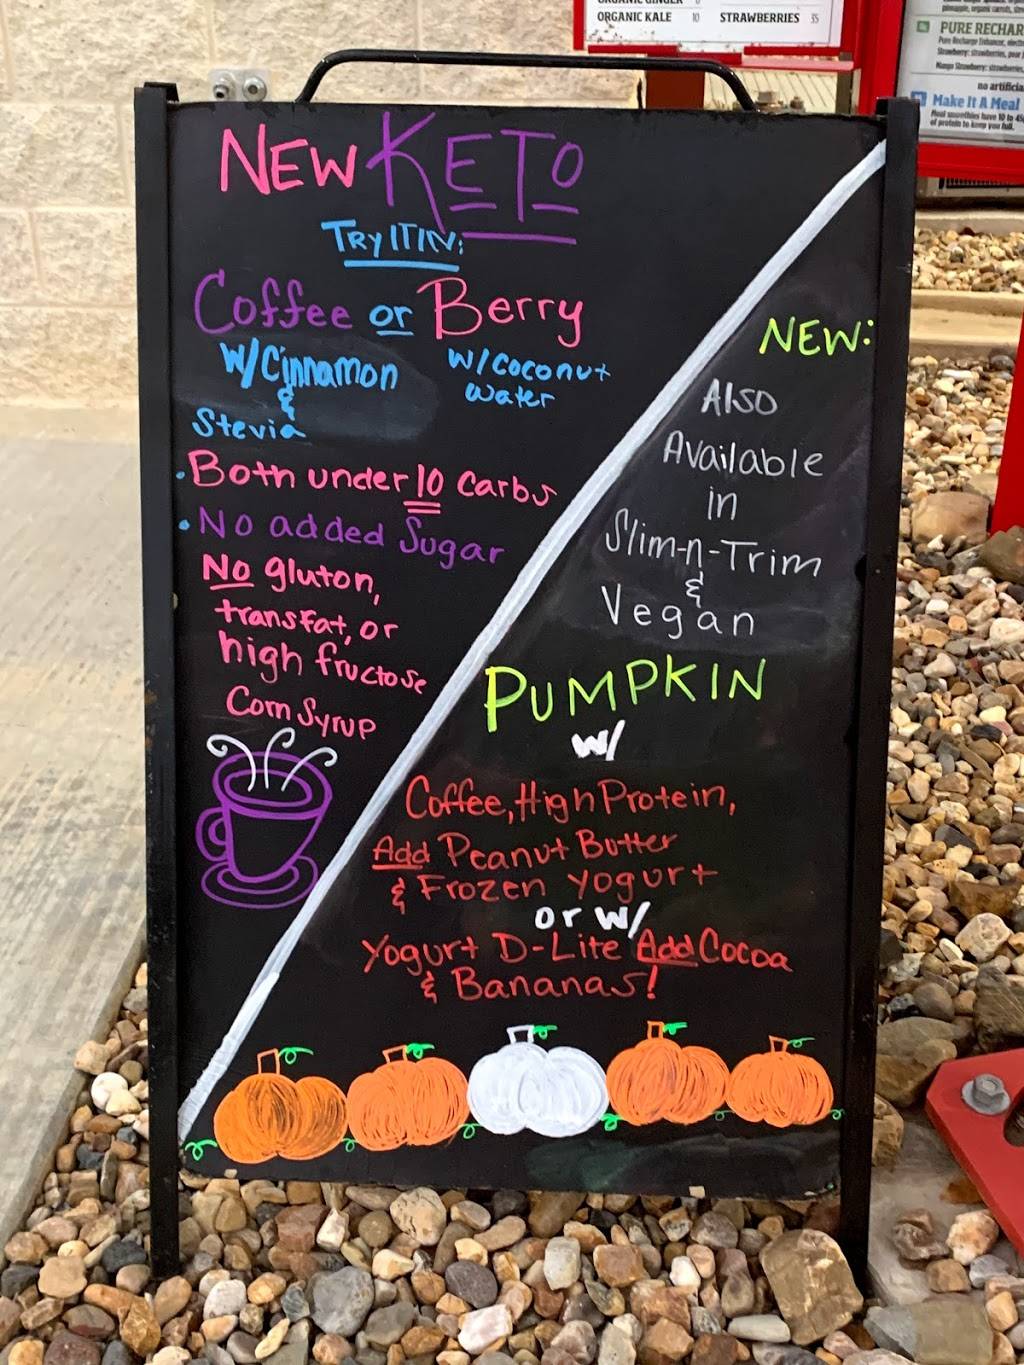 ORGANIC GINGER
ORGANIC KALE 10 STRAWBERRIES 35
PURE RECHAR
no artificia
Make It A Meal
Meal smoothies have 10 to 45g
of protein to keep you full.
NEW KETO
TRY IT IN:
Coffee or Berry
W/Cinnamon
&
Stevia
W/Coconut
Water
. Both under 10 Carbs
. No added Sugar
No gluton,
transfat, or
high fructose
Corn Syrup
NEW:
Also
Available
in
Slim-n-Trim
&
Vegan
PUMPKIN
W/
Coffee, High Protein,
Add Peanut Butter
& Frozen Yogurt
or W/
Yogurt D-Lite Add Cocoa
& Bananas!